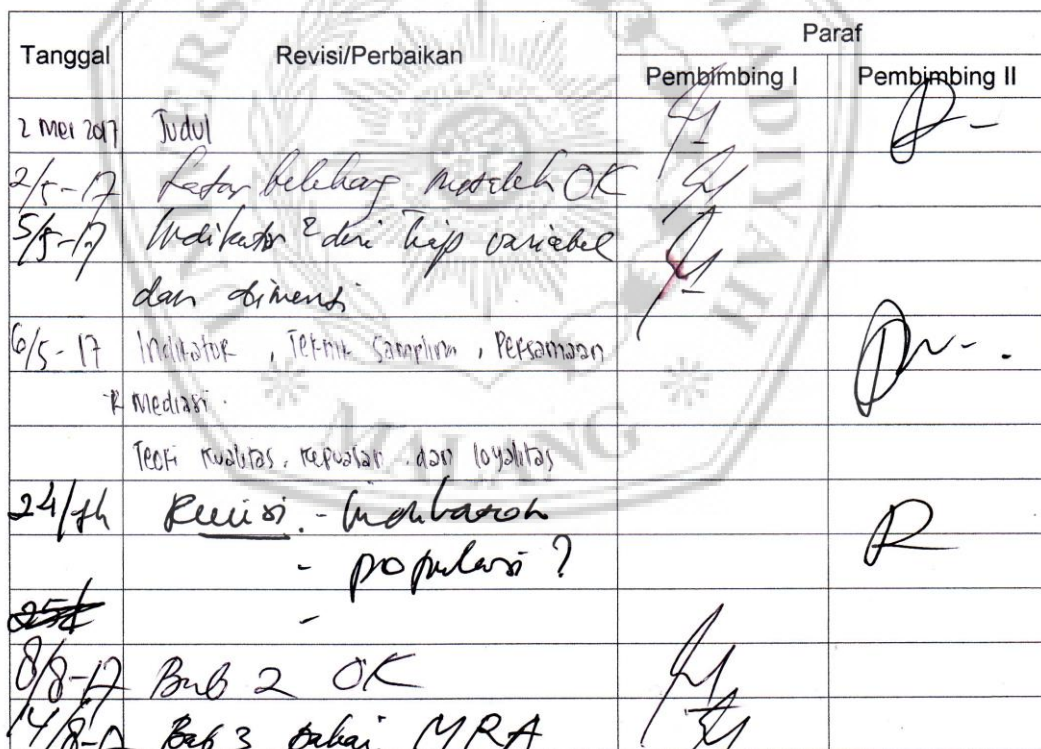 Tanggal Revisi/Perbaikan Paraf
Pembimbing I Pembimbing II
2 Mei 2017 Judul
2/5-17 Latar belakang masalah OK
5/5-17 Indikator2 dari tiap variabel
dan dimensi
6/5-17 Indikator, Teknik sampling, Persamaan
Mediasi.
Teori kualitas, kepuasan dan loyalitas
24/ Revisi. - Indikator
- populasi?
-
8/8-17 Bab 2 OK
14/8-17 Bab 3 pakai MRA
MALANG